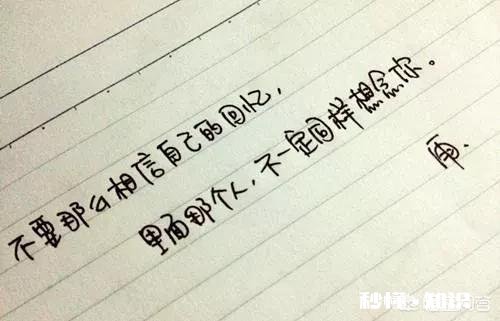 不要那么相信自己的回忆，
里面那个人，不一定同样想念你。
秒懂 知识